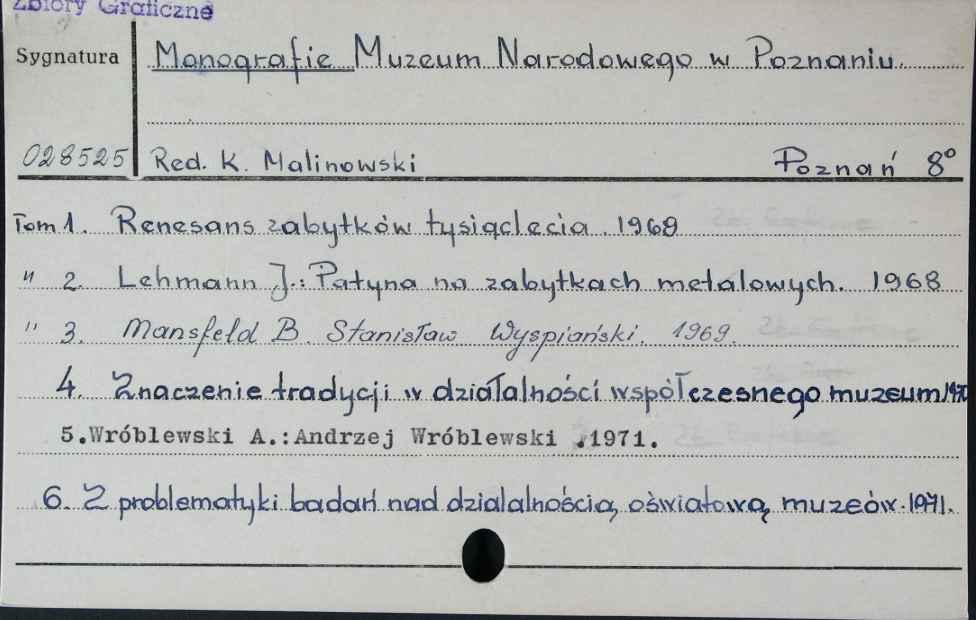 Zbiory Graficzne
Sygnatura
Monografie Muzeum Narodowego w Poznaniu.
028525 Red. K. Malinowski Poznań 8°
Tom 1. Renesans zabytków tysiąclecia. 1968
" 2. Lehmann J.: Patyna na zabytkach metalowych. 1968
" 3. Mansfeld B. Stanisław Wyspiański. 1969.
4. Znaczenie tradycji w działalności współczesnego muzeum 1970
5.Wróblewski A.:Andrzej Wróblewski .1971.
6. Z problematyki badań nad dzialalnością oświatową muzeów. 1971.